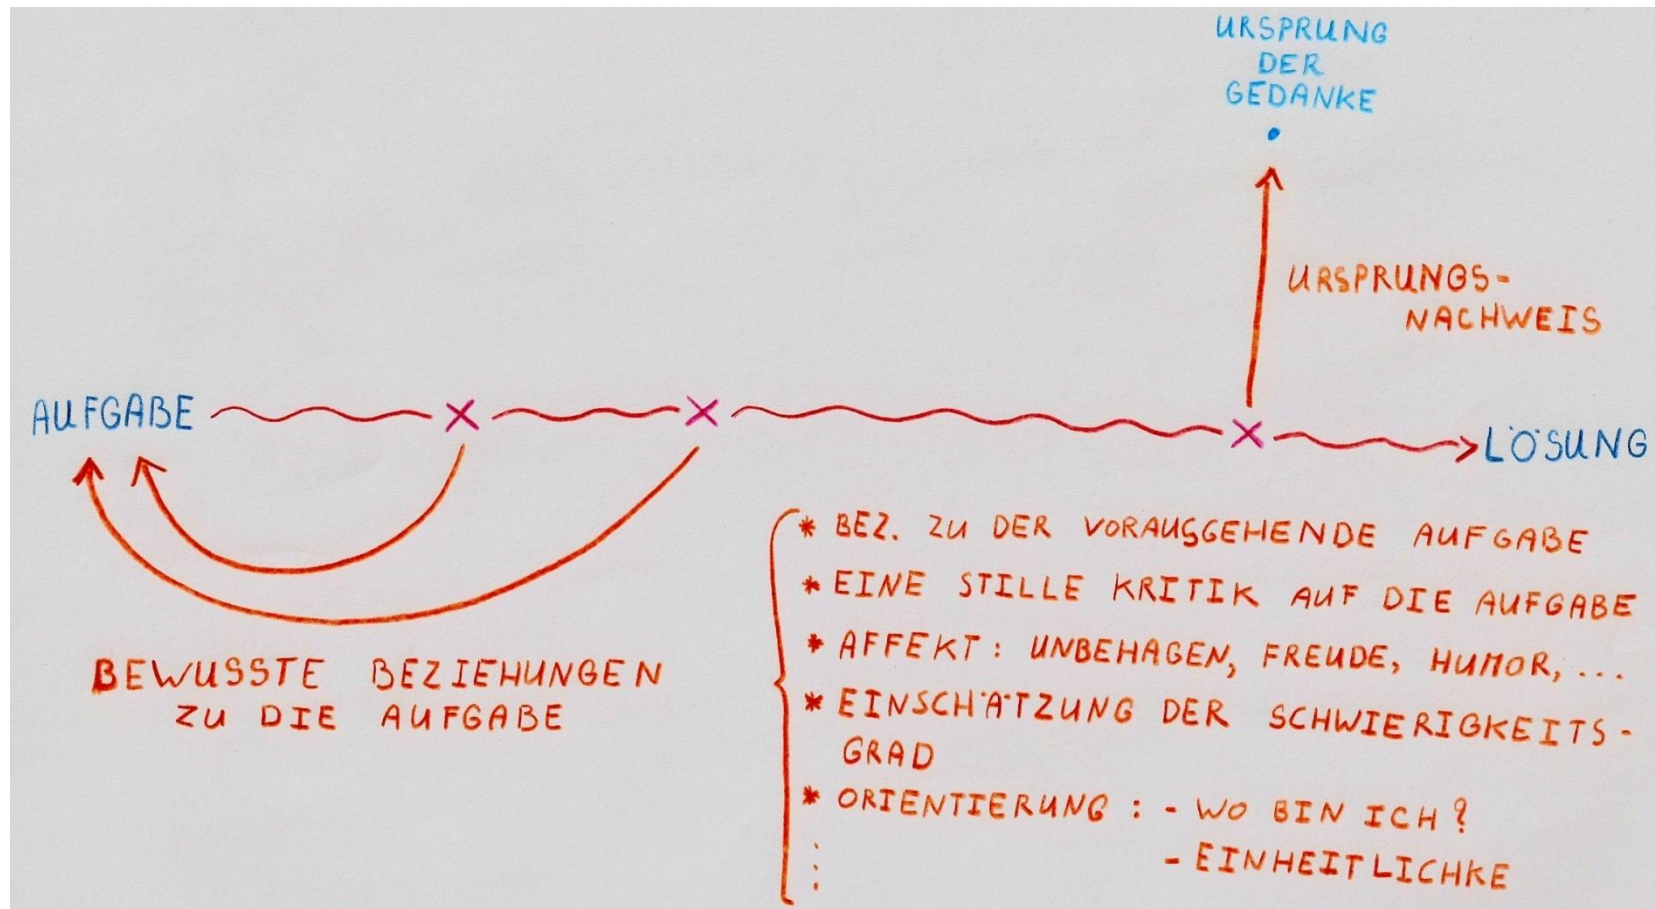 URSPRUNG
DER
GEDANKE
URSPRUNGS-
NACHWEIS
AUFGABE
LÖSUNG
BEWUSSTE BEZIEHUNGEN
ZU DIE AUFGABE
* BEZ. ZU DER VORAUSGEHENDE AUFGABE
* EINE STILLE KRITIK AUF DIE AUFGABE
* AFFEKT: UNBEHAGEN, FREUDE, HUMOR, ...
* EINSCHÄTZUNG DER SCHWIERIGKEITS-
GRAD
* ORIENTIERUNG: - WO BIN ICH?
- EINHEITLICHKE